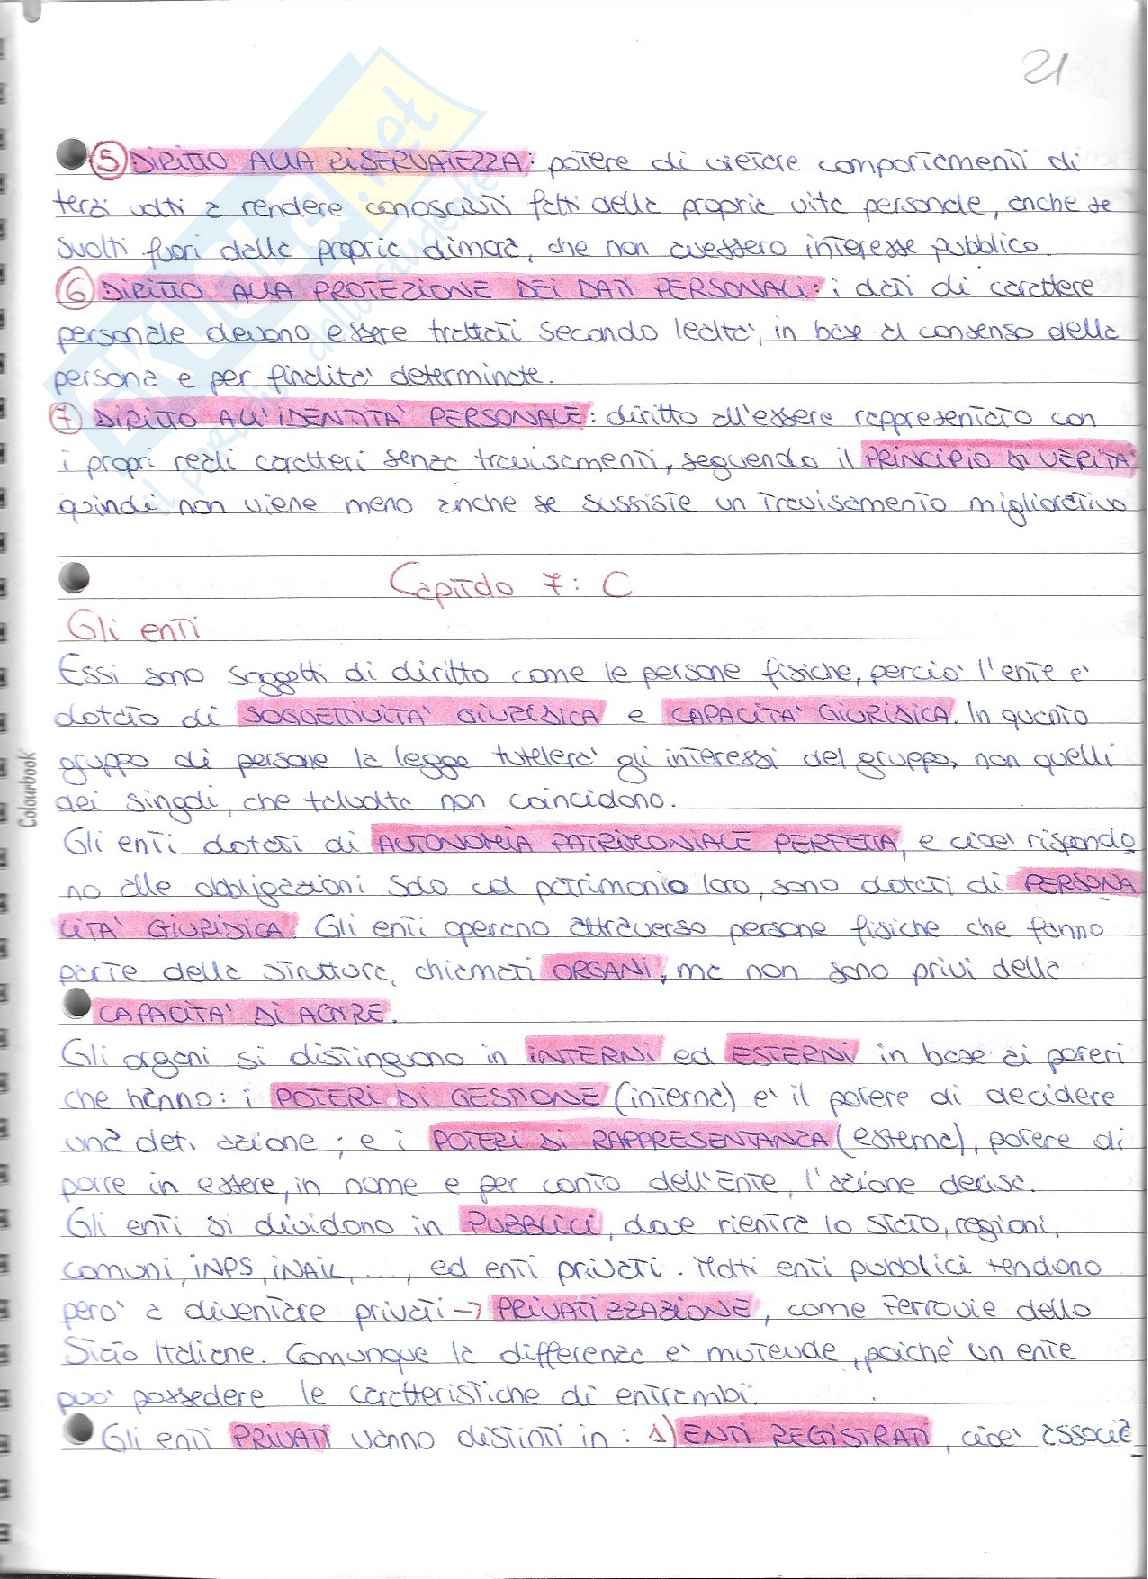 21
5 DIRITTO ALLA RISERVATEZZA: potere di vietare comportamenti di
terzi volti a rendere conoscibili fatti della propria vita personale, anche se
svolti fuori della propria dimora, che non avessero interesse pubblico.
6 DIRITTO ALLA PROTEZIONE DEI DATI PERSONALI: i dati di carattere
personale devono essere trattati secondo lealtà, in base al consenso della
persona e per finalità determinate.
7 DIRITTO ALL'IDENTITÀ PERSONALE: diritto all'essere rappresentato con
i propri reali caratteri senza travisamenti, seguendo il PRINCIPIO DI VERITÀ
quindi non viene meno anche se sussiste un travisamento migliorativo
Capitolo 7: C
Gli enti
Essi sono soggetti di diritto come le persone fisiche, perciò l'ente è
dotato di SOGGETTIVITÀ GIURIDICA e CAPACITÀ GIURIDICA. In quanto
gruppo di persone la legge tutelerà gli interessi del gruppo, non quelli
dei singoli, che talvolta non coincidono.
Gli enti dotati di AUTONOMIA PATRIMONIALE PERFETTA, e cioè rispondo
no alle obbligazioni solo col patrimonio loro, sono dotati di PERSONA
LITÀ GIURIDICA. Gli enti operano attraverso persone fisiche che fanno
parte della struttura, chiamati ORGANI, ma non sono privi della
CAPACITÀ DI AGIRE.
Gli organi si distinguono in INTERNI ed ESTERNI in base ai poteri
che hanno: i POTERI DI GESTIONE (interna) è il potere di decidere
una det. azione; e i POTERI DI RAPPRESENTANZA (esterna), potere di
porre in essere, in nome e per conto dell'Ente, l'azione decisa.
Gli enti si dividono in PUBBLICI, dove rientra lo stato, regioni,
comuni, INPS, INAIL, ..., ed enti privati. Molti enti pubblici tendono
però a diventare privati → PRIVATIZZAZIONE, come Ferrovie dello
Stato Italiane. Comunque la differenza è mutevole, poiché un ente
può possedere le caratteristiche di entrambi.
Gli enti PRIVATI vanno distinti in: 1) ENTI REGISTRATI, cioè associa
Colourbook
SKUOLA.net